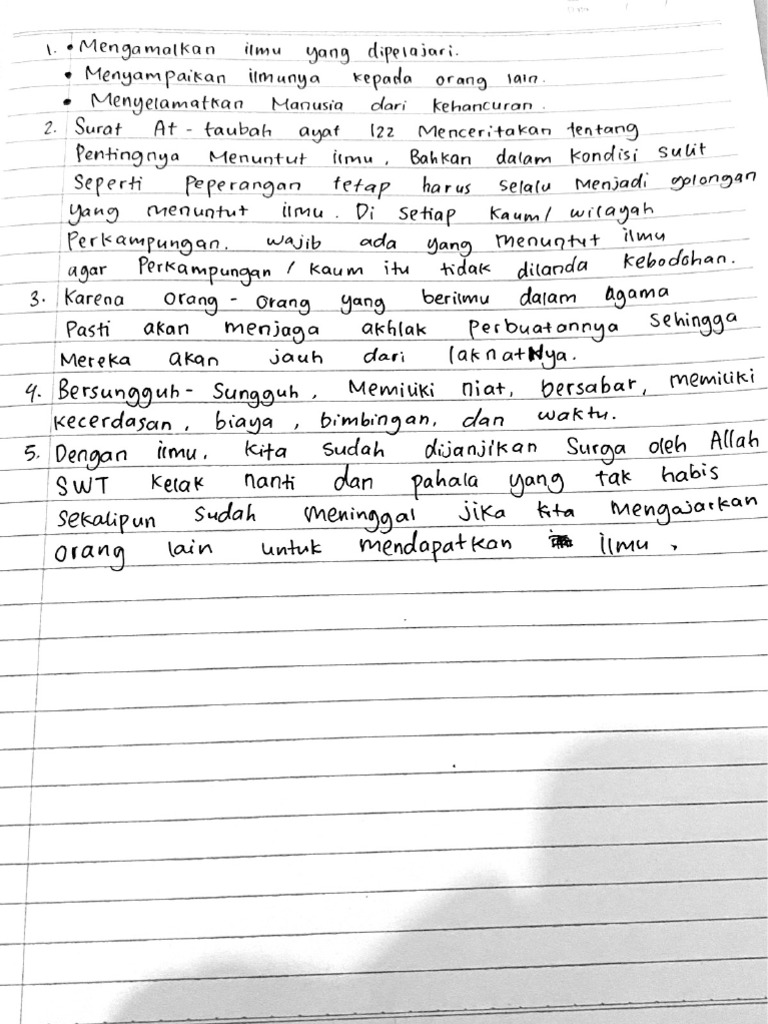 1. • Mengamalkan ilmu yang dipelajari.
• Menyampaikan ilmunya kepada orang lain.
• Menyelamatkan Manusia dari kehancuran.
2. Surat At-taubah ayat 122 Menceritakan tentang
Pentingnya Menuntut ilmu, Bahkan dalam kondisi sulit
Seperti Peperangan tetap harus selalu Menjadi golongan
yang menuntut ilmu. Di setiap kaum/ wilayah
Perkampungan, wajib ada yang menuntut ilmu
agar Perkampungan / kaum itu tidak dilanda kebodohan.
3. Karena orang-orang yang berilmu dalam Agama
Pasti akan menjaga akhlak Perbuatannya sehingga
Mereka akan jauh dari laknatNya.
4. Bersungguh-sungguh, Memiliki niat, bersabar, memiliki
kecerdasan, biaya, bimbingan, dan waktu.
5. Dengan ilmu, kita sudah dijanjikan Surga oleh Allah
SWT kelak nanti dan pahala yang tak habis
sekalipun sudah meninggal jika kita mengajarkan
orang lain untuk mendapatkan ilmu,